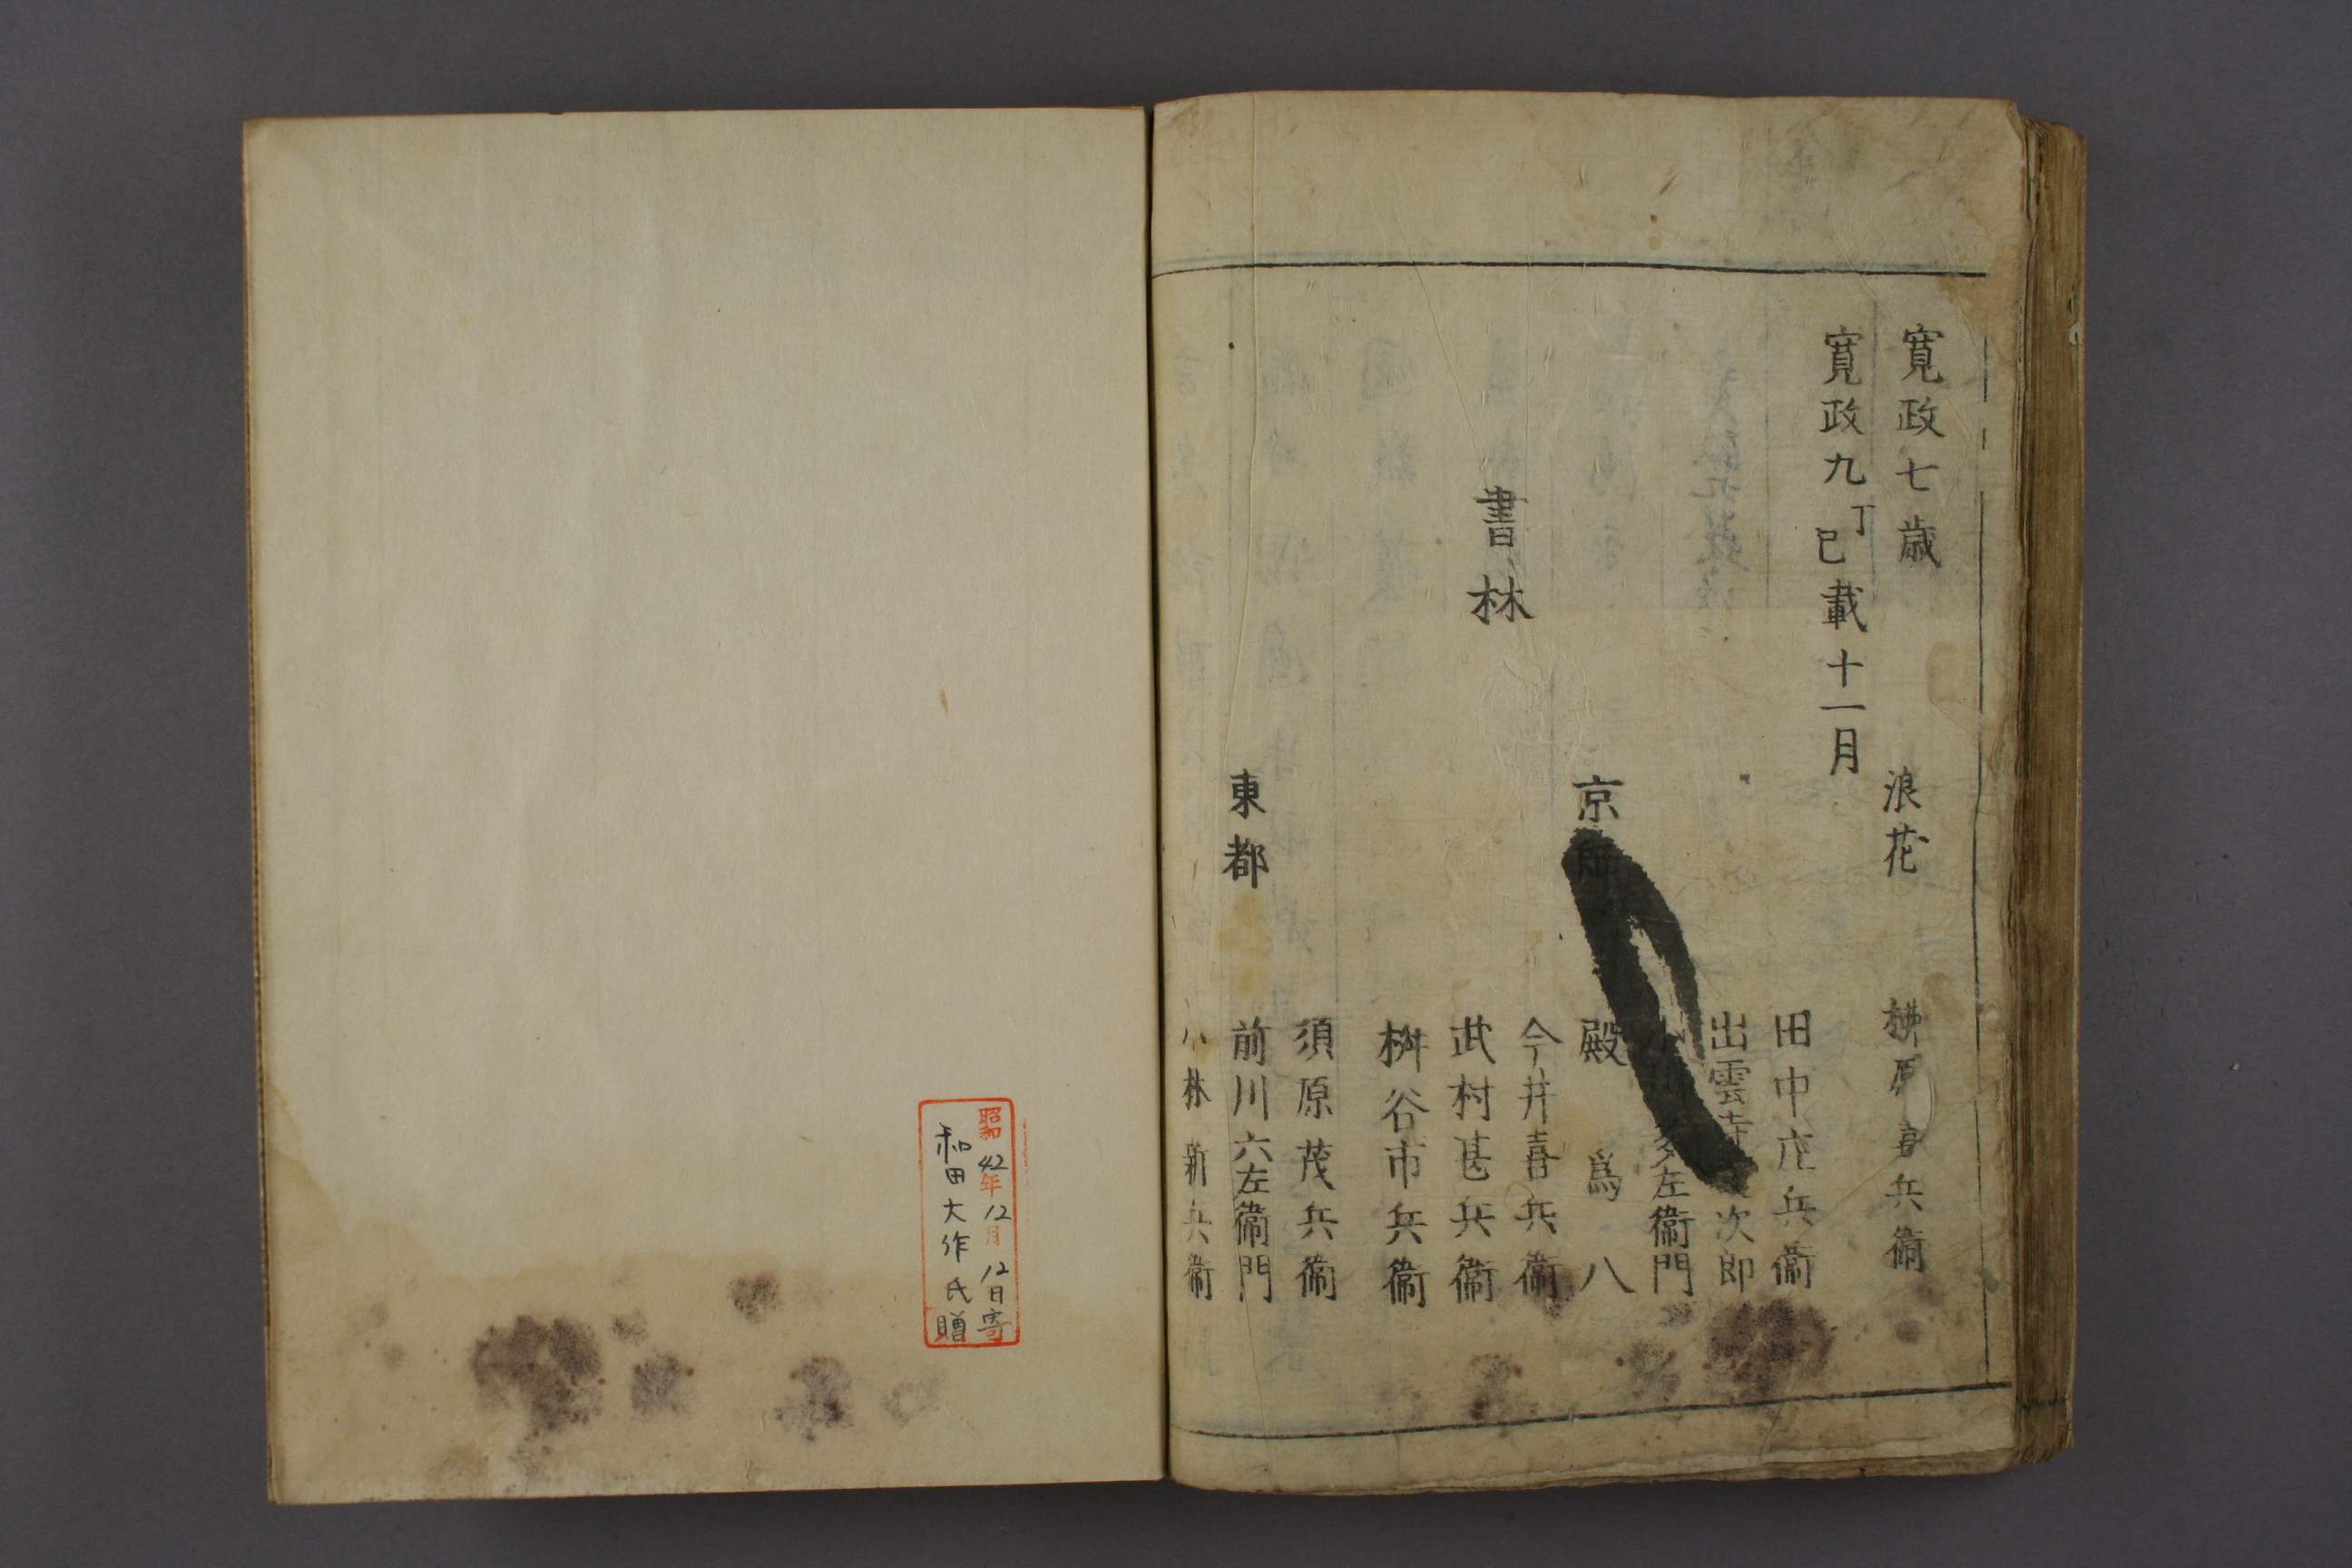 寛政七歳
寛政九丁巳載十一月
書林
浪花
原喜兵衞
京師
田中庄兵衞
出雲寺次郎
多左衞門
殿爲八
今井喜兵衞
武村甚兵衞
桝谷市兵衞
東都
須原茂兵衞
前川六左衞門
小林新兵衞
昭和42年12月12日寄
和田大作氏贈